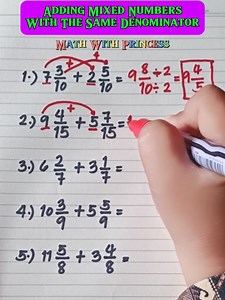 Adding Mixed Numbers
With The Same Denominator
Math With Princess
1.) 7 3/10 + 2 5/10 = 9 8÷2/10÷2 = 9 4/5
2.) 9 4/15 + 5 7/15 =
3.) 6 2/7 + 3 1/7 =
4.) 10 3/9 + 5 5/9 =
5.) 11 5/8 + 3 4/8 =